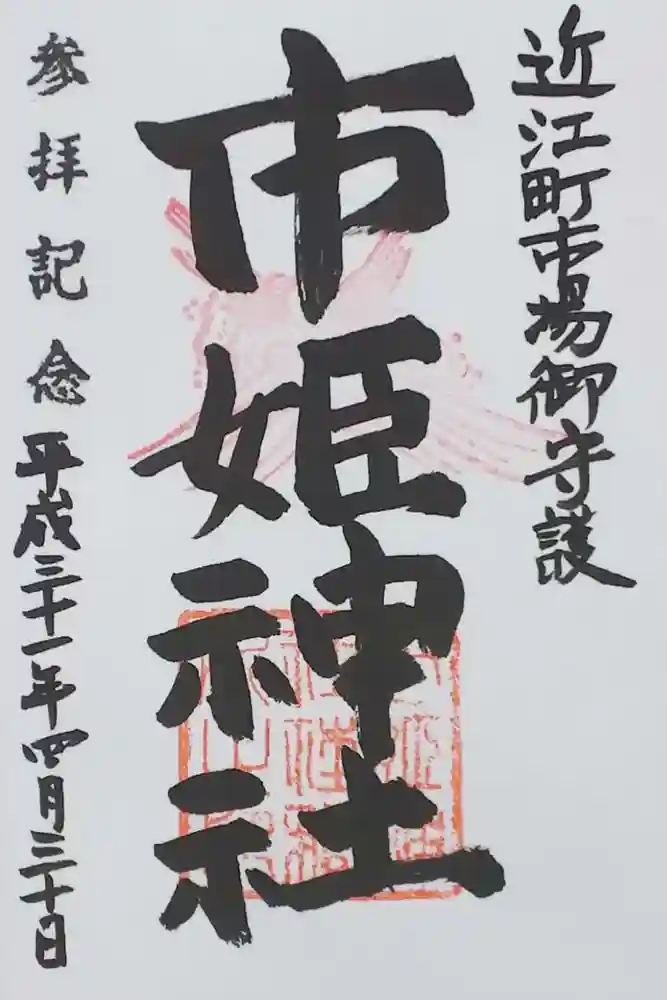 近江町市場御守護
市姫神社
参拝記念平成三十一年四月三十日